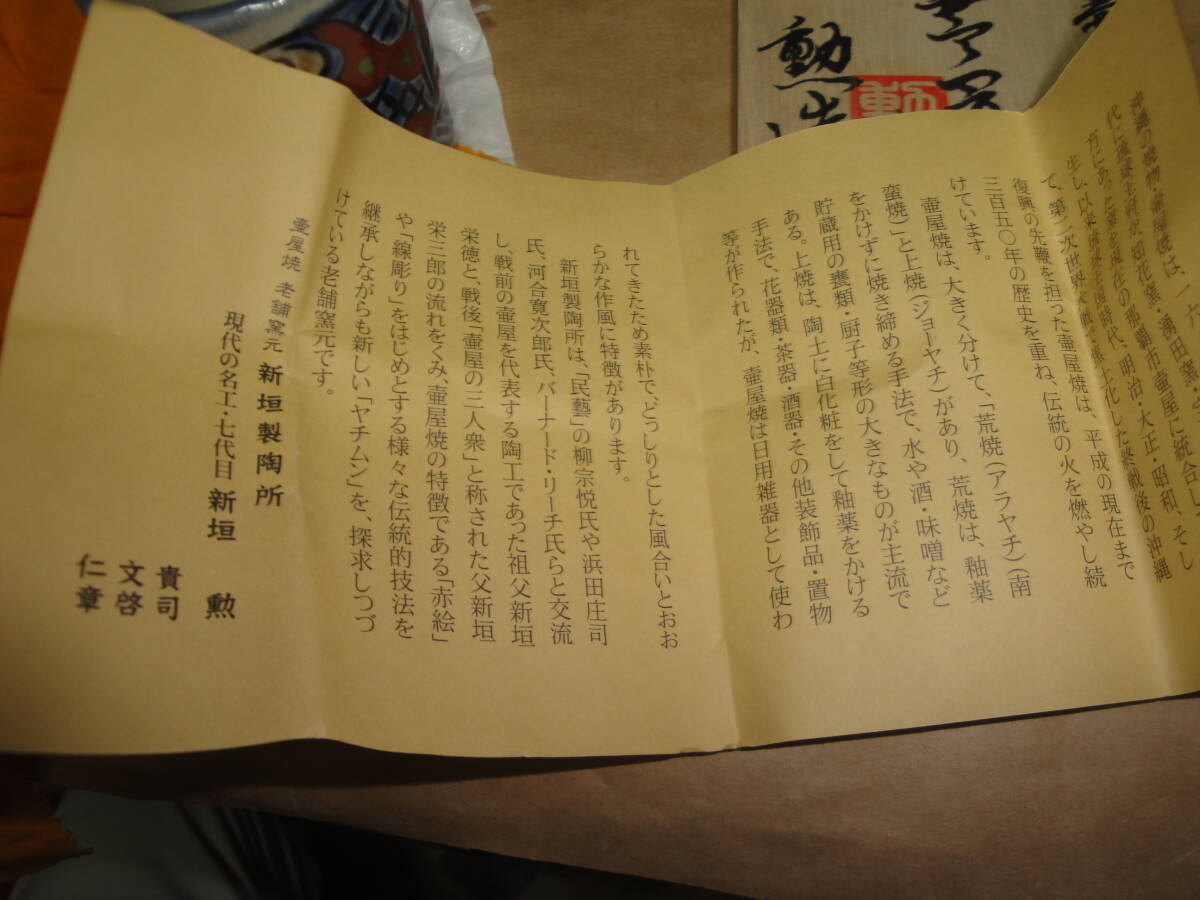 沖縄の焼物・壷屋焼は、一六
代に琉球王府が、知花窯・湧田窯
方にあった窯を現在の那覇市壷屋に統合して
生し、以来琉球王国時代、明治・大正・昭和、そし
て、第二次世界大戦で焦土と化した終戦後の沖縄
復興の先鞭を担った壷屋焼は、平成の現在まで
三百五〇年の歴史を重ね、伝統の火を燃やし続
けています。
壷屋焼は、大きく分けて、「荒焼(アラヤチ)(南
蛮焼)」と上焼(ジョーヤチ)があり、荒焼は、釉薬
をかけずに焼き締める手法で、水や酒・味噌など
貯蔵用の甕類・厨子等形の大きなものが主流で
ある。上焼は、陶土に白化粧をして釉薬をかける
手法で、花器類・茶器・酒器・その他装飾品・置物
等が作られたが、壷屋焼は日用雑器として使わ
れてきたため素朴で、どっしりとした風合いとおお
らかな作風に特徴があります。
新垣製陶所は、「民藝」の柳宗悦氏や浜田庄司
氏、河合寛次郎氏、バーナード・リーチ氏らと交流
し、戦前の壷屋を代表する陶工であった祖父新垣
栄徳と、戦後「壷屋の三人衆」と称された父新垣
栄三郎の流れをくみ、壷屋焼の特徴である「赤絵」
や「線彫り」をはじめとする様々な伝統的技法を
継承しながらも新しい「ヤチムン」を、探求しつづ
けている老舗窯元です。
壷屋焼 老舗窯元 新垣製陶所
現代の名工・七代目 新垣 勲
貴司
文啓
仁章
勲